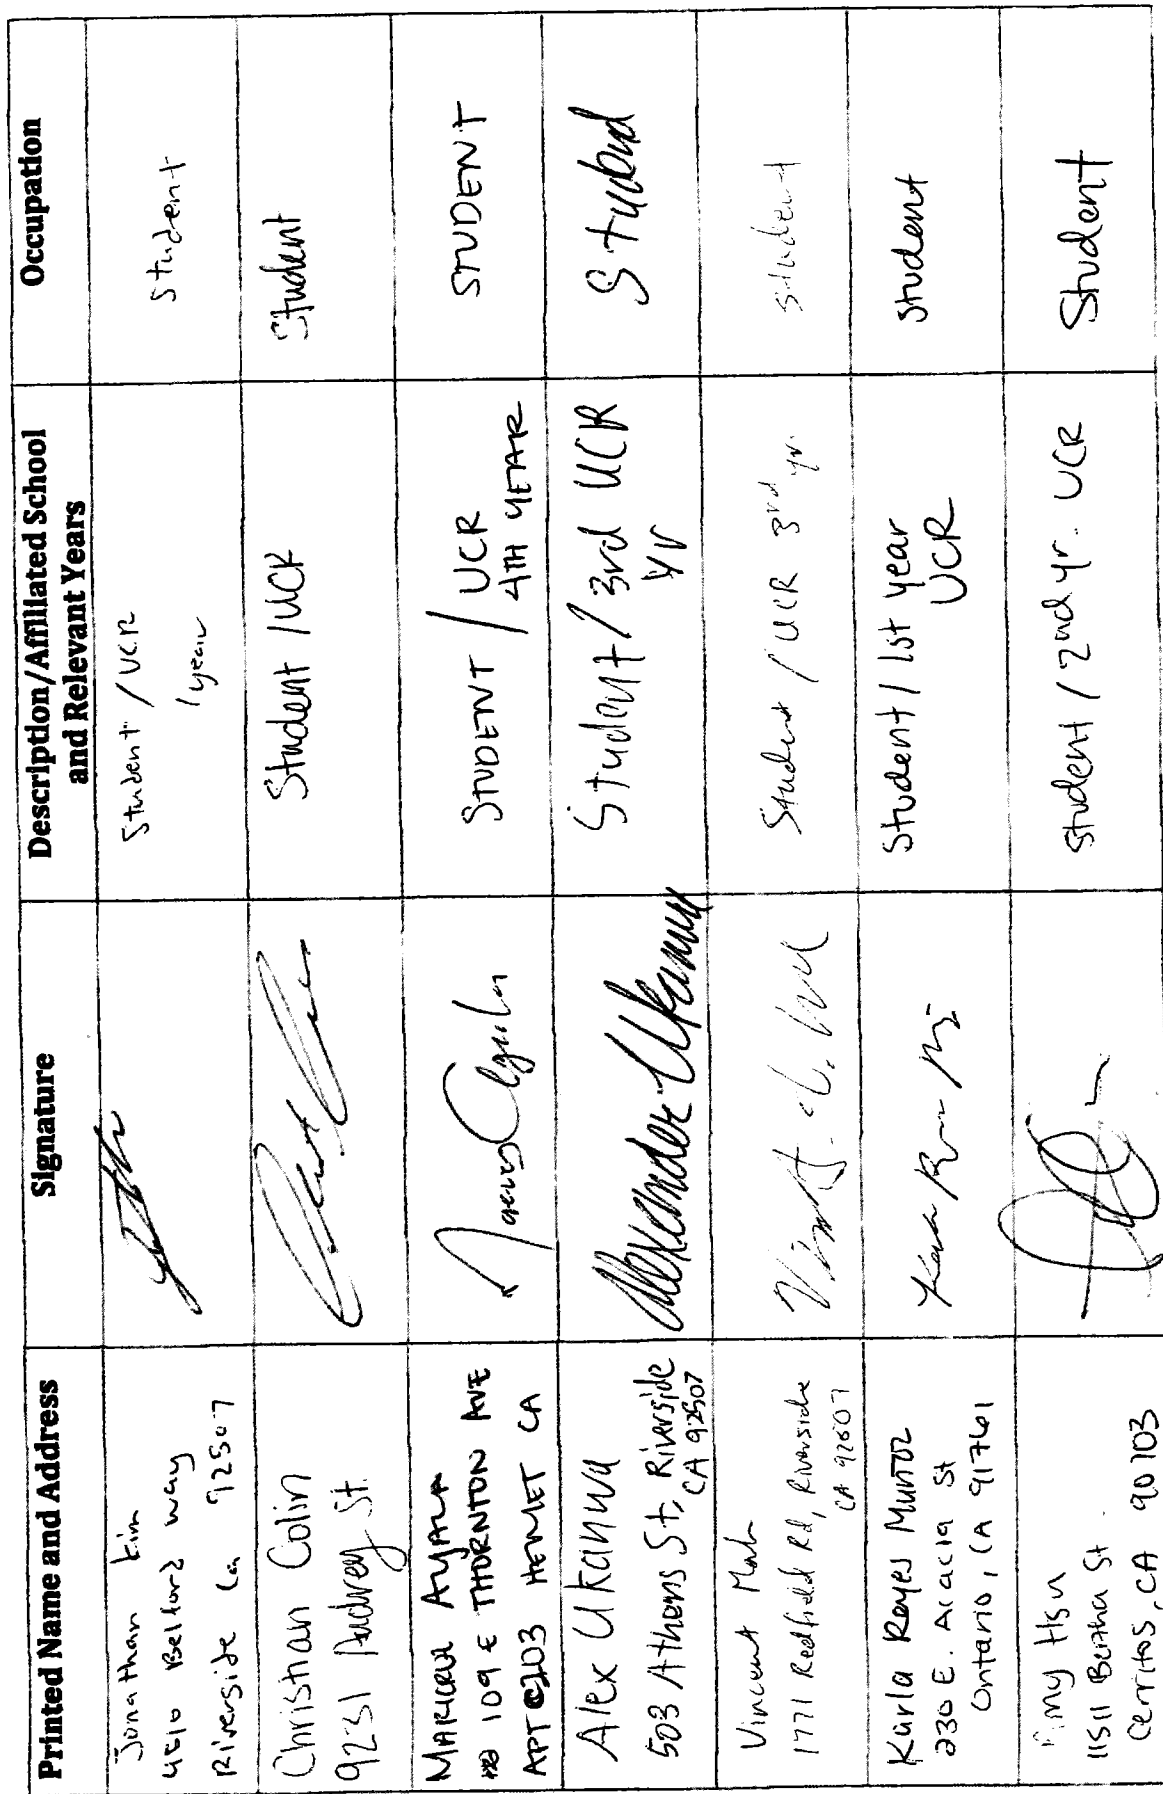 Printed Name and Address
Signature
Description/Affiliated School
and Relevant Years
Occupation
Jonathan Kim
Way
Riverside Ca 92507
Student / UCR
1 year
Student
Christian Colin
9231 Audrey St.
Student / UCR
Student
MARICRUZ AYALA
109 E THORNTON AVE
APT C203 HEMET CA
STUDENT / UCR
4TH YEAR
STUDENT
Alex Ukanwa
503 Athens St, Riverside
CA 92507
Alexander Ukanwa
Student / 3rd UCR
yr
Student
Vincent
1771 Redfield Rd, Riverside
CA 92507
Student / UCR 3rd
yr.
student
Karla Reyes Munoz
230 E. Acacia St
Ontario, CA 91761
Student / 1st year
UCR
student
Hsu
11511 Bertha St.
Cerritos, CA 90703
Student / 2nd yr. UCR
Student